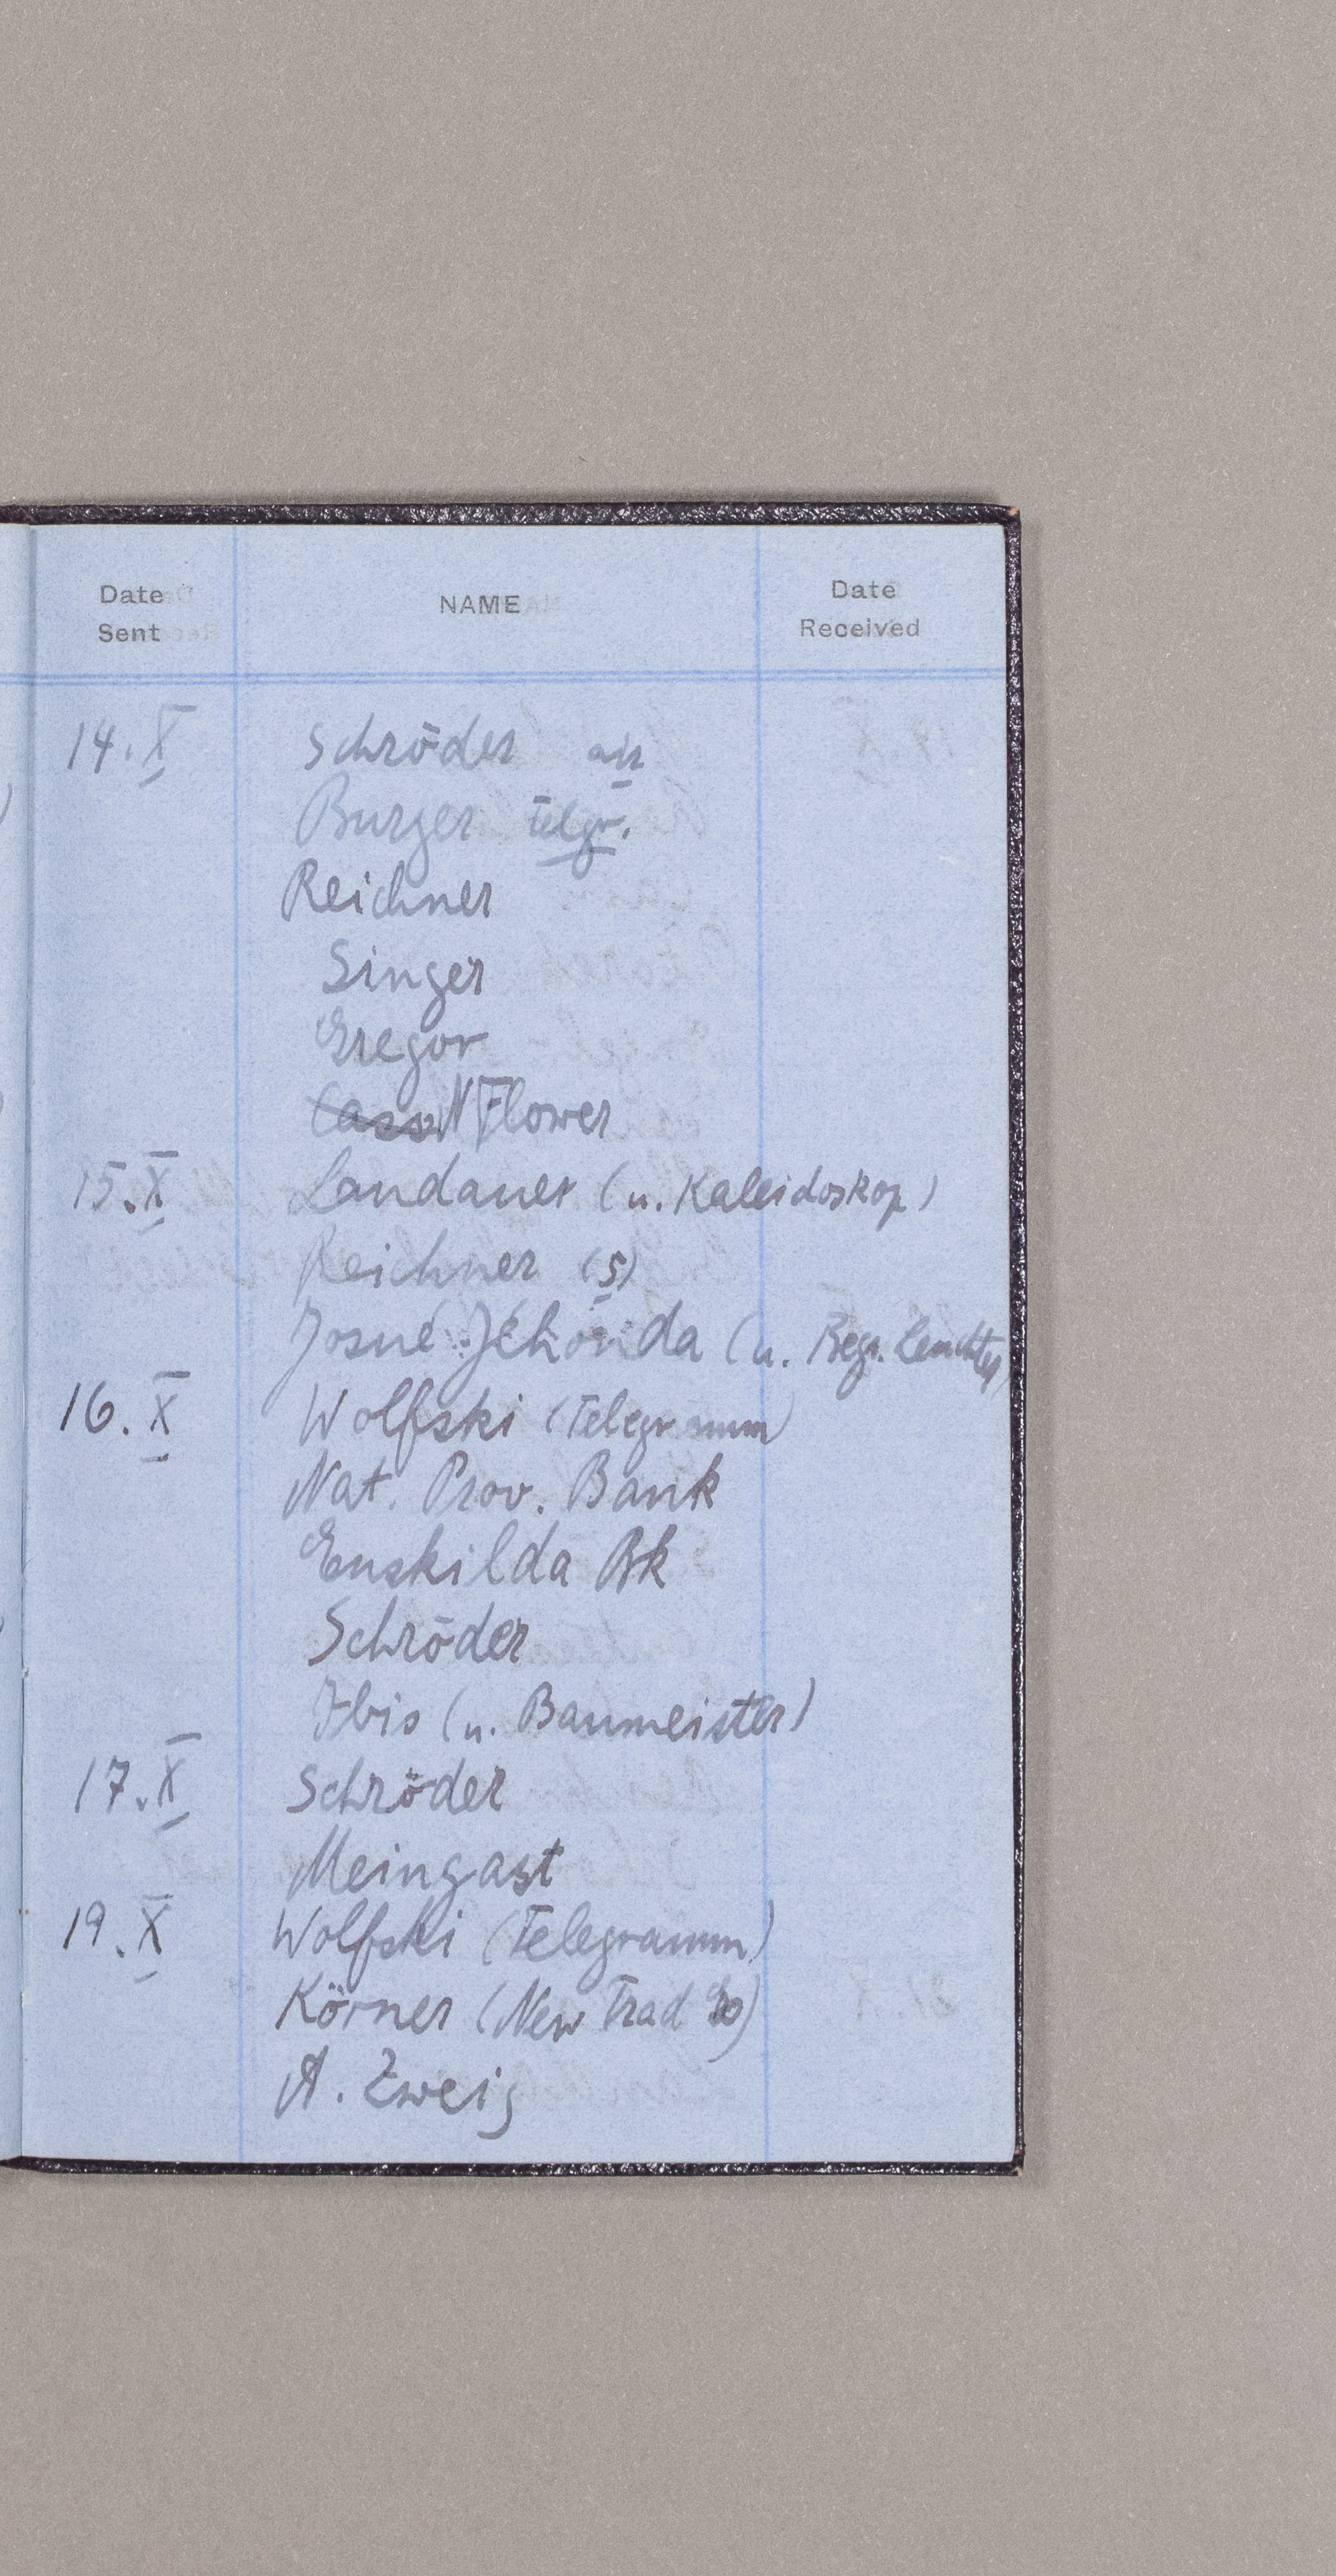 Date Sent NAME Date Received
14. X Schröder air
Burger telgr.
Reichner
Singer
Gregor
N Flower
15. X Landauer (u. Kaleidoskop)
Reichner (5)
Josué Jéhouda (u. Begr. Leuchter)
16. X Wolfski (Telegramm)
Nat. Prov. Bank
Enskilda Bk
Schröder
Ibis (u. Baumeister)
17. X Schröder
Meingast
19. X Wolfski (Telegramm)
Körner (New Trad Co)
A. Zweig